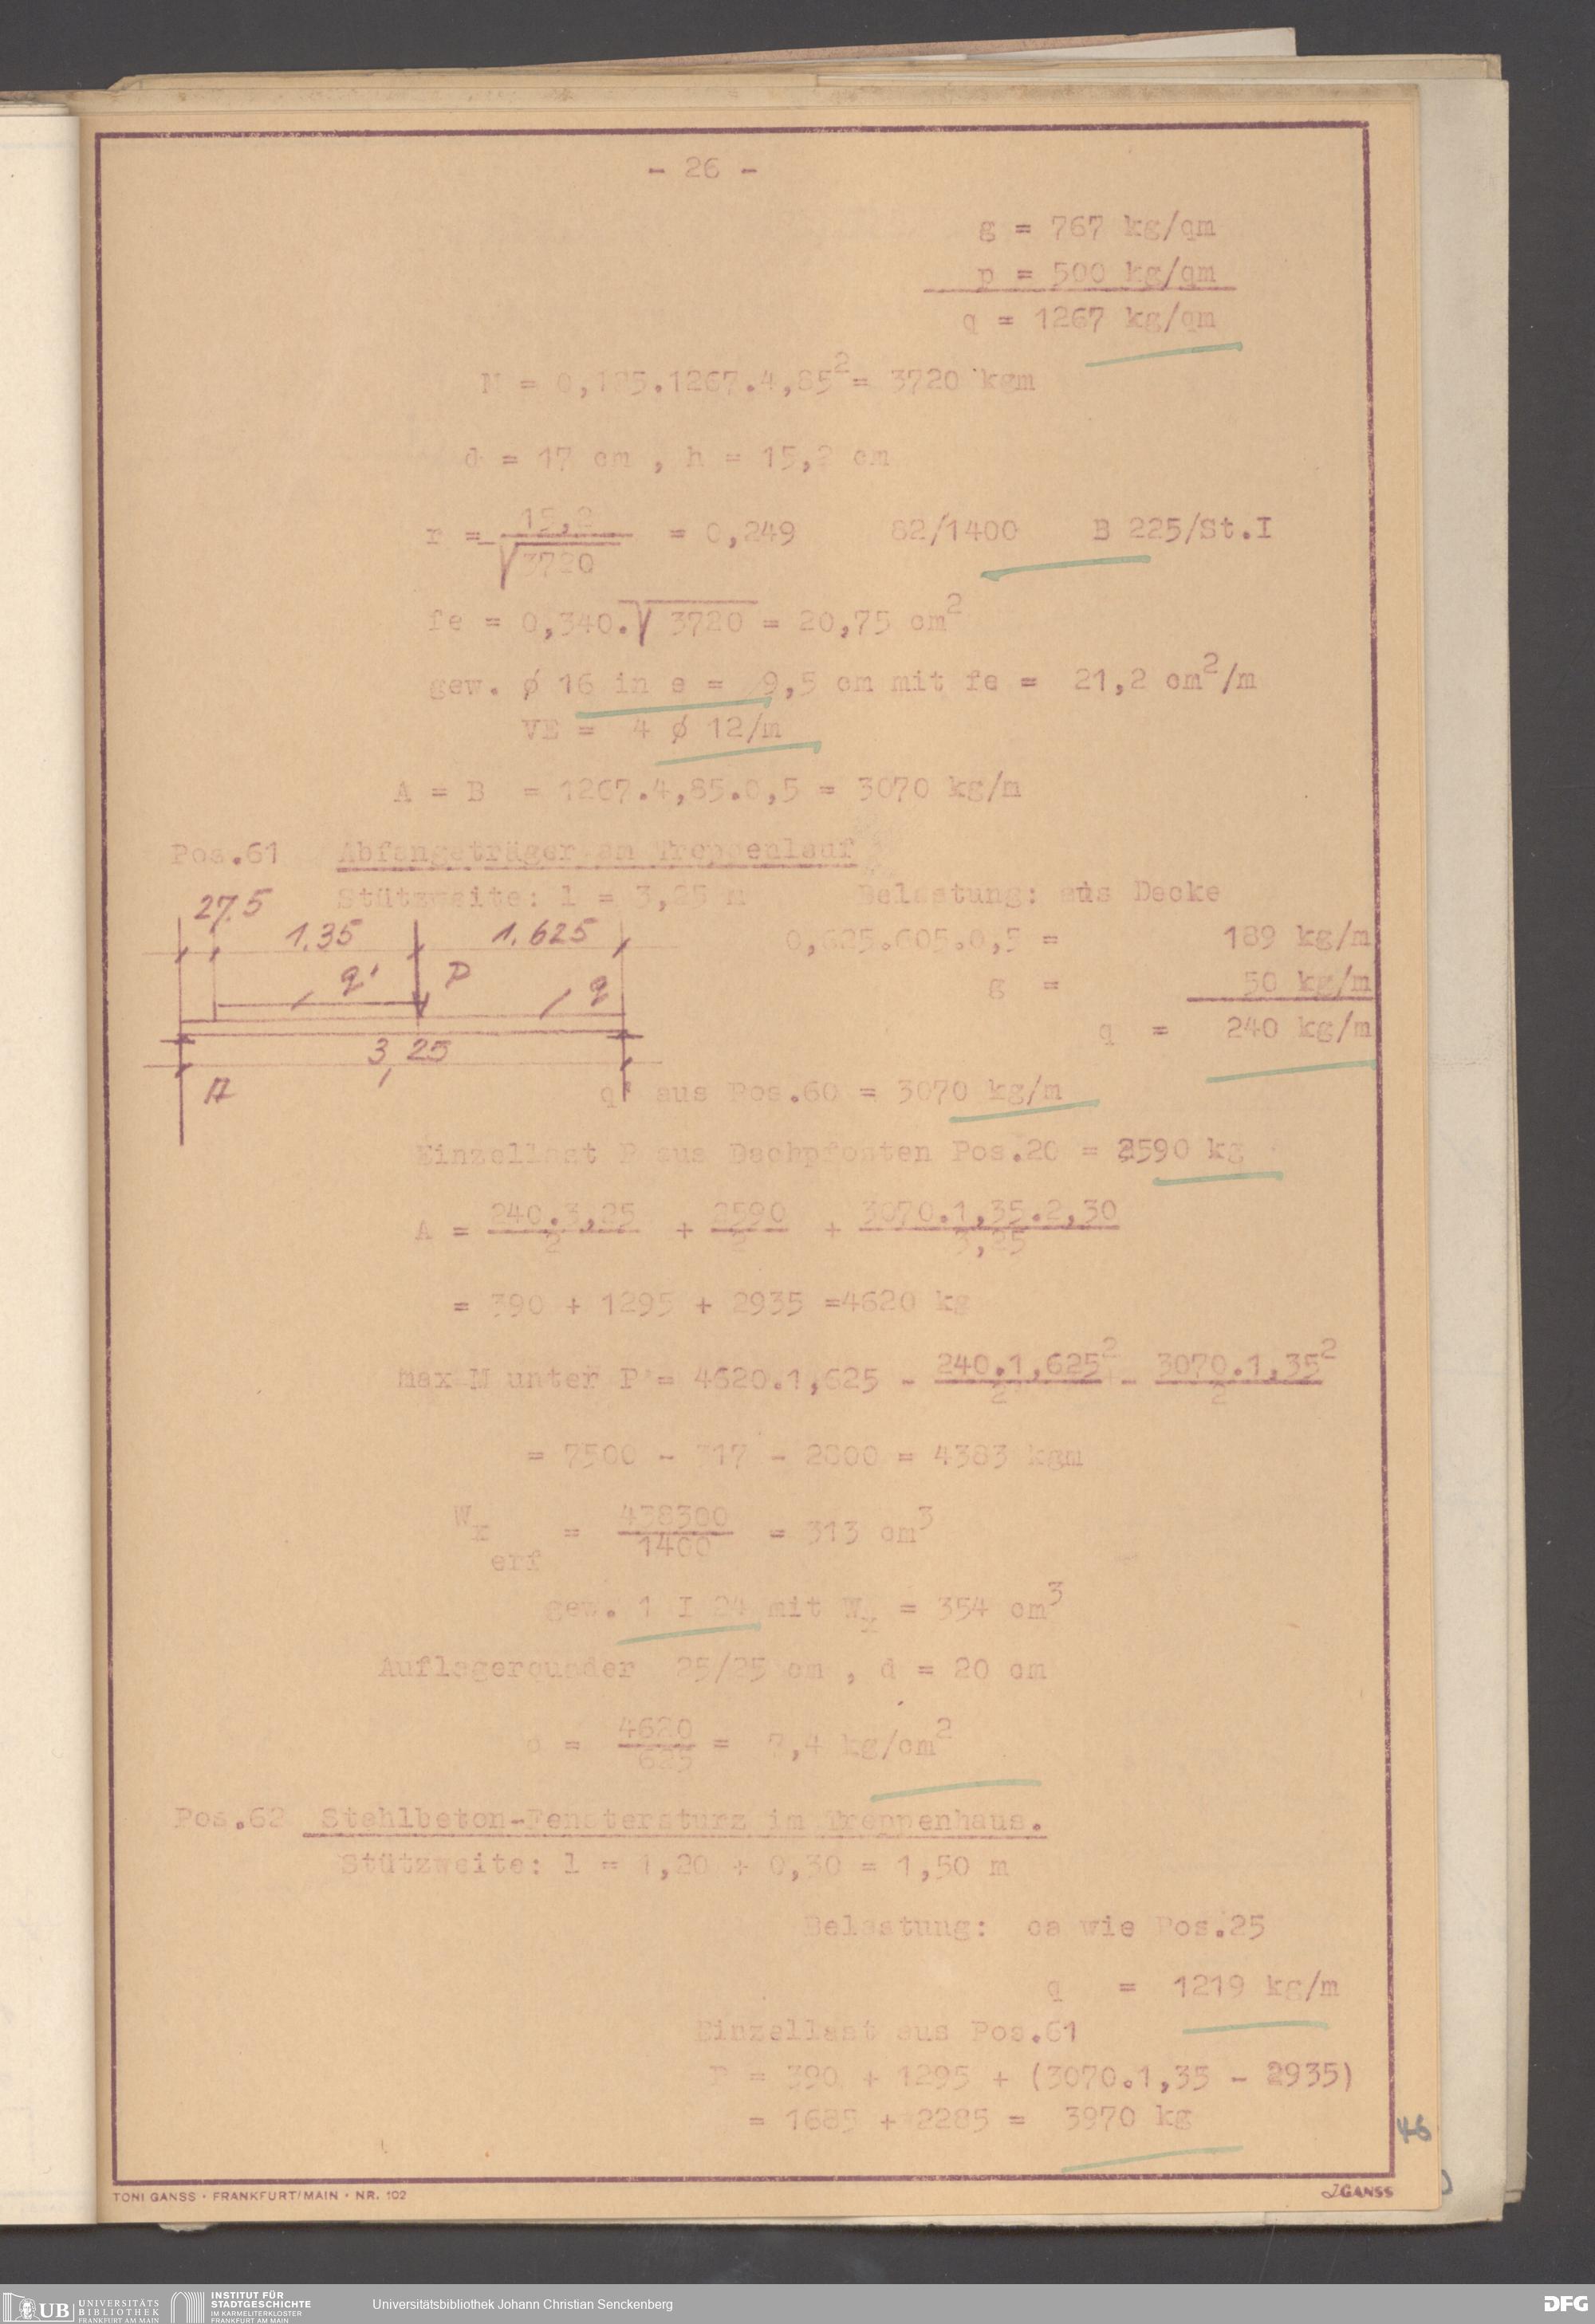 - 26 -
g = 767 kg/qm
p = 500 kg/qm
q = 1267 kg/qm
M = 0,125.1267.4,85²= 3720 kgm
d = 17 cm , h = 15,2 cm
r = 15,2 / √3720 = 0,249 82/1400 B 225/St.I
fe = 0,340.√ 3720 = 20,75 cm²
gew. ø 16 in e = 9,5 cm mit fe = 21,2 cm²/m
VE = 4 ø 12/m
A = B = 1267.4,85.0,5 = 3070 kg/m
Pos.61 Abfangeträger am Treppenlauf
Stützweite: l = 3,25 m Belastung: aus Decke
27.5
1.35 1.625
0,625.605.0,5 = 189 kg/m
q' P q
g = 50 kg/m
q = 240 kg/m
3,25
A
q' aus Pos.60 = 3070 kg/m
Einzellast P aus Dachpfosten Pos.20 = 2590 kg
A = 240.3,25 / 2 + 2590 / 2 + 3070.1,35.2,30 / 3,25
= 390 + 1295 + 2935 =4620 kg
max M unter P = 4620.1,625 - 240.1,625² / 2 - 3070.1,35² / 2
= 7500 - 317 - 2800 = 4383 kgm
Wx erf = 438300 / 1400 = 313 cm³
gew. 1 I 24 mit Wx = 354 cm³
Auflagerquader 25/25 cm , d = 20 cm
= 4620 / 625 = 7,4 kg/cm²
Pos.62 Stahlbeton-Fenstersturz im Treppenhaus.
Stützweite: l = 1,20 + 0,30 = 1,50 m
Belastung: ca wie Pos.25
q = 1219 kg/m
Einzellast aus Pos.61
P = 390 + 1295 + (3070.1,35 - 2935)
= 1685 + 2285 = 3970 kg
46
TONI GANSS · FRANKFURT/MAIN · NR. 102
JGANSS
UB UNIVERSITÄTS BIBLIOTHEK FRANKFURT AM MAIN
INSTITUT FÜR STADTGESCHICHTE IM KARMELITERKLOSTER FRANKFURT AM MAIN
Universitätsbibliothek Johann Christian Senckenberg
DFG